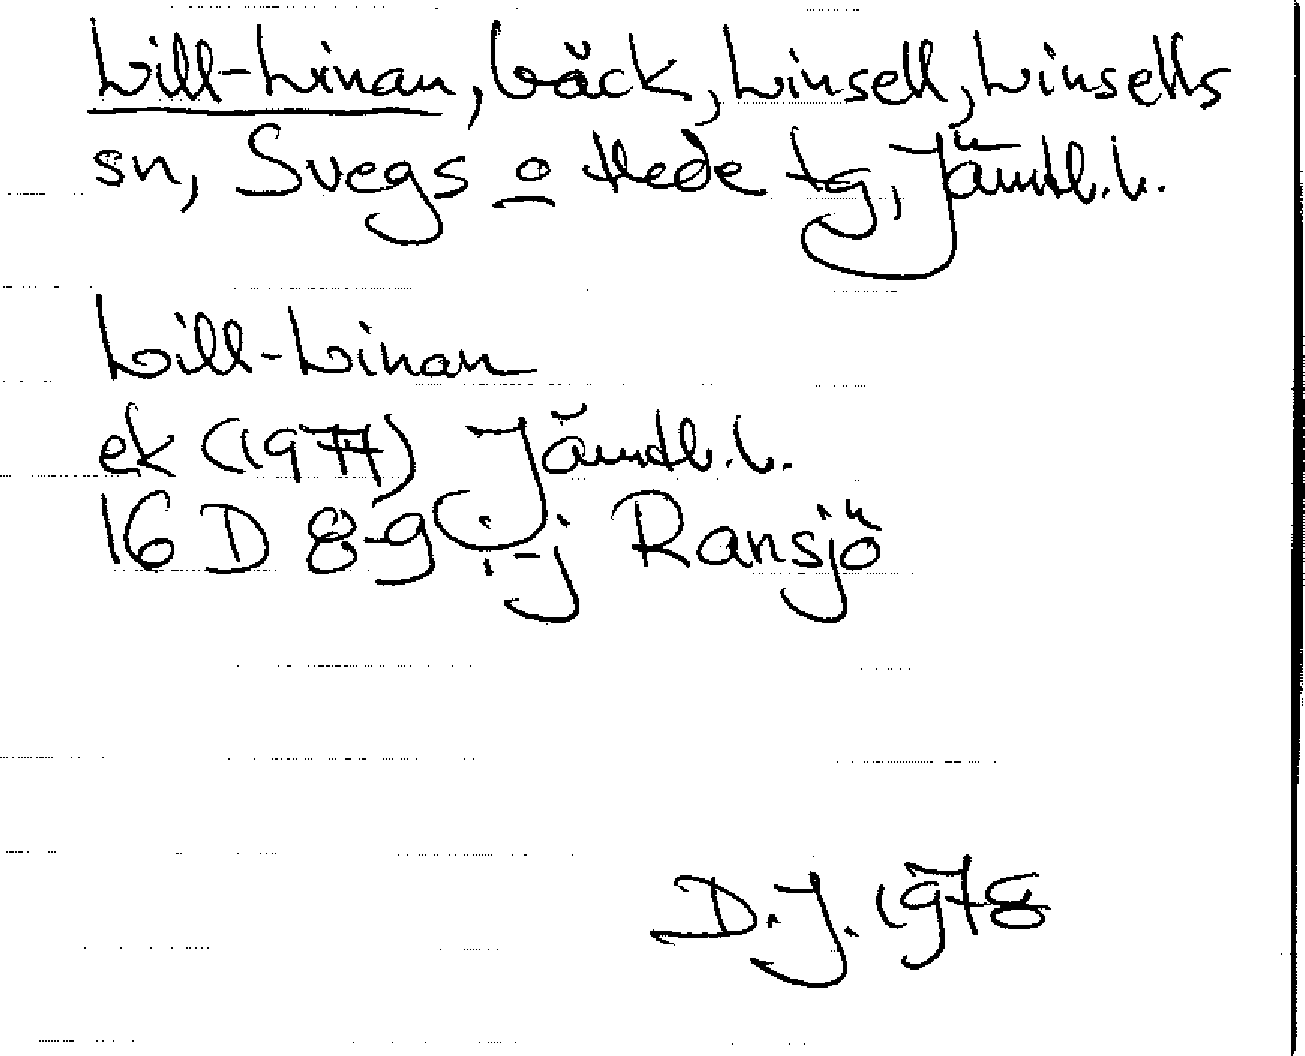 Lill-Linan, bäck, Linsell, Linsells
sn, Svegs o Hede tg, Jämtl.l.
Lill-Linan
ek (1977) Jämtl.l.
16 D 8-9 i-j Ransjö
D.J. 1978